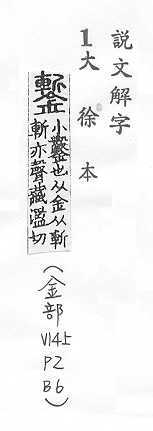 説文解字
1大徐本
鏨
小鑿也从金从斬
斬亦聲藏濫切
(金部
V14上
P2
B6)